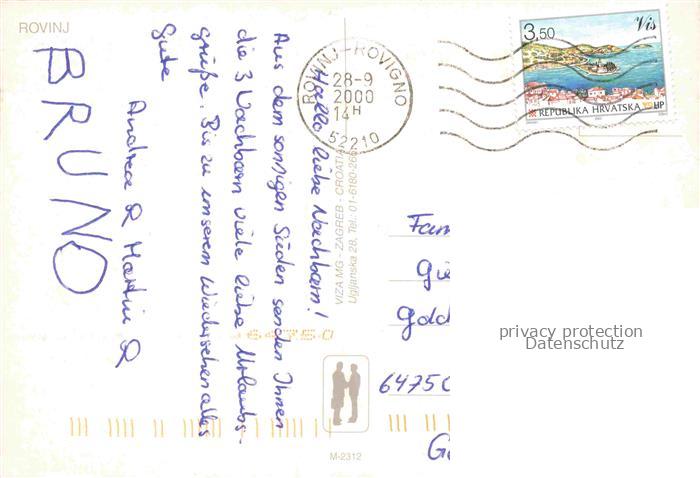 ROVINJ
Hallo liebe Nachbarn!
Aus dem sonnigen Süden senden Ihnen
die 3 Nachbarn viele liebe Urlaubs-
grüße. Bis zu unserem Wiedersehen alles
Gute
Andrea & Martin &
BRUNO
VIZA MG - ZAGREB - CROATIA
Ugljanska 28, Tel. 01-6180-266
ROVINJ-ROVIGNO
28-9
2000
14H
52210
3,50
Vis
REPUBLIKA HRVATSKA HP
Fam
Gie
64750
64750
M-2312
privacy protection
Datenschutz